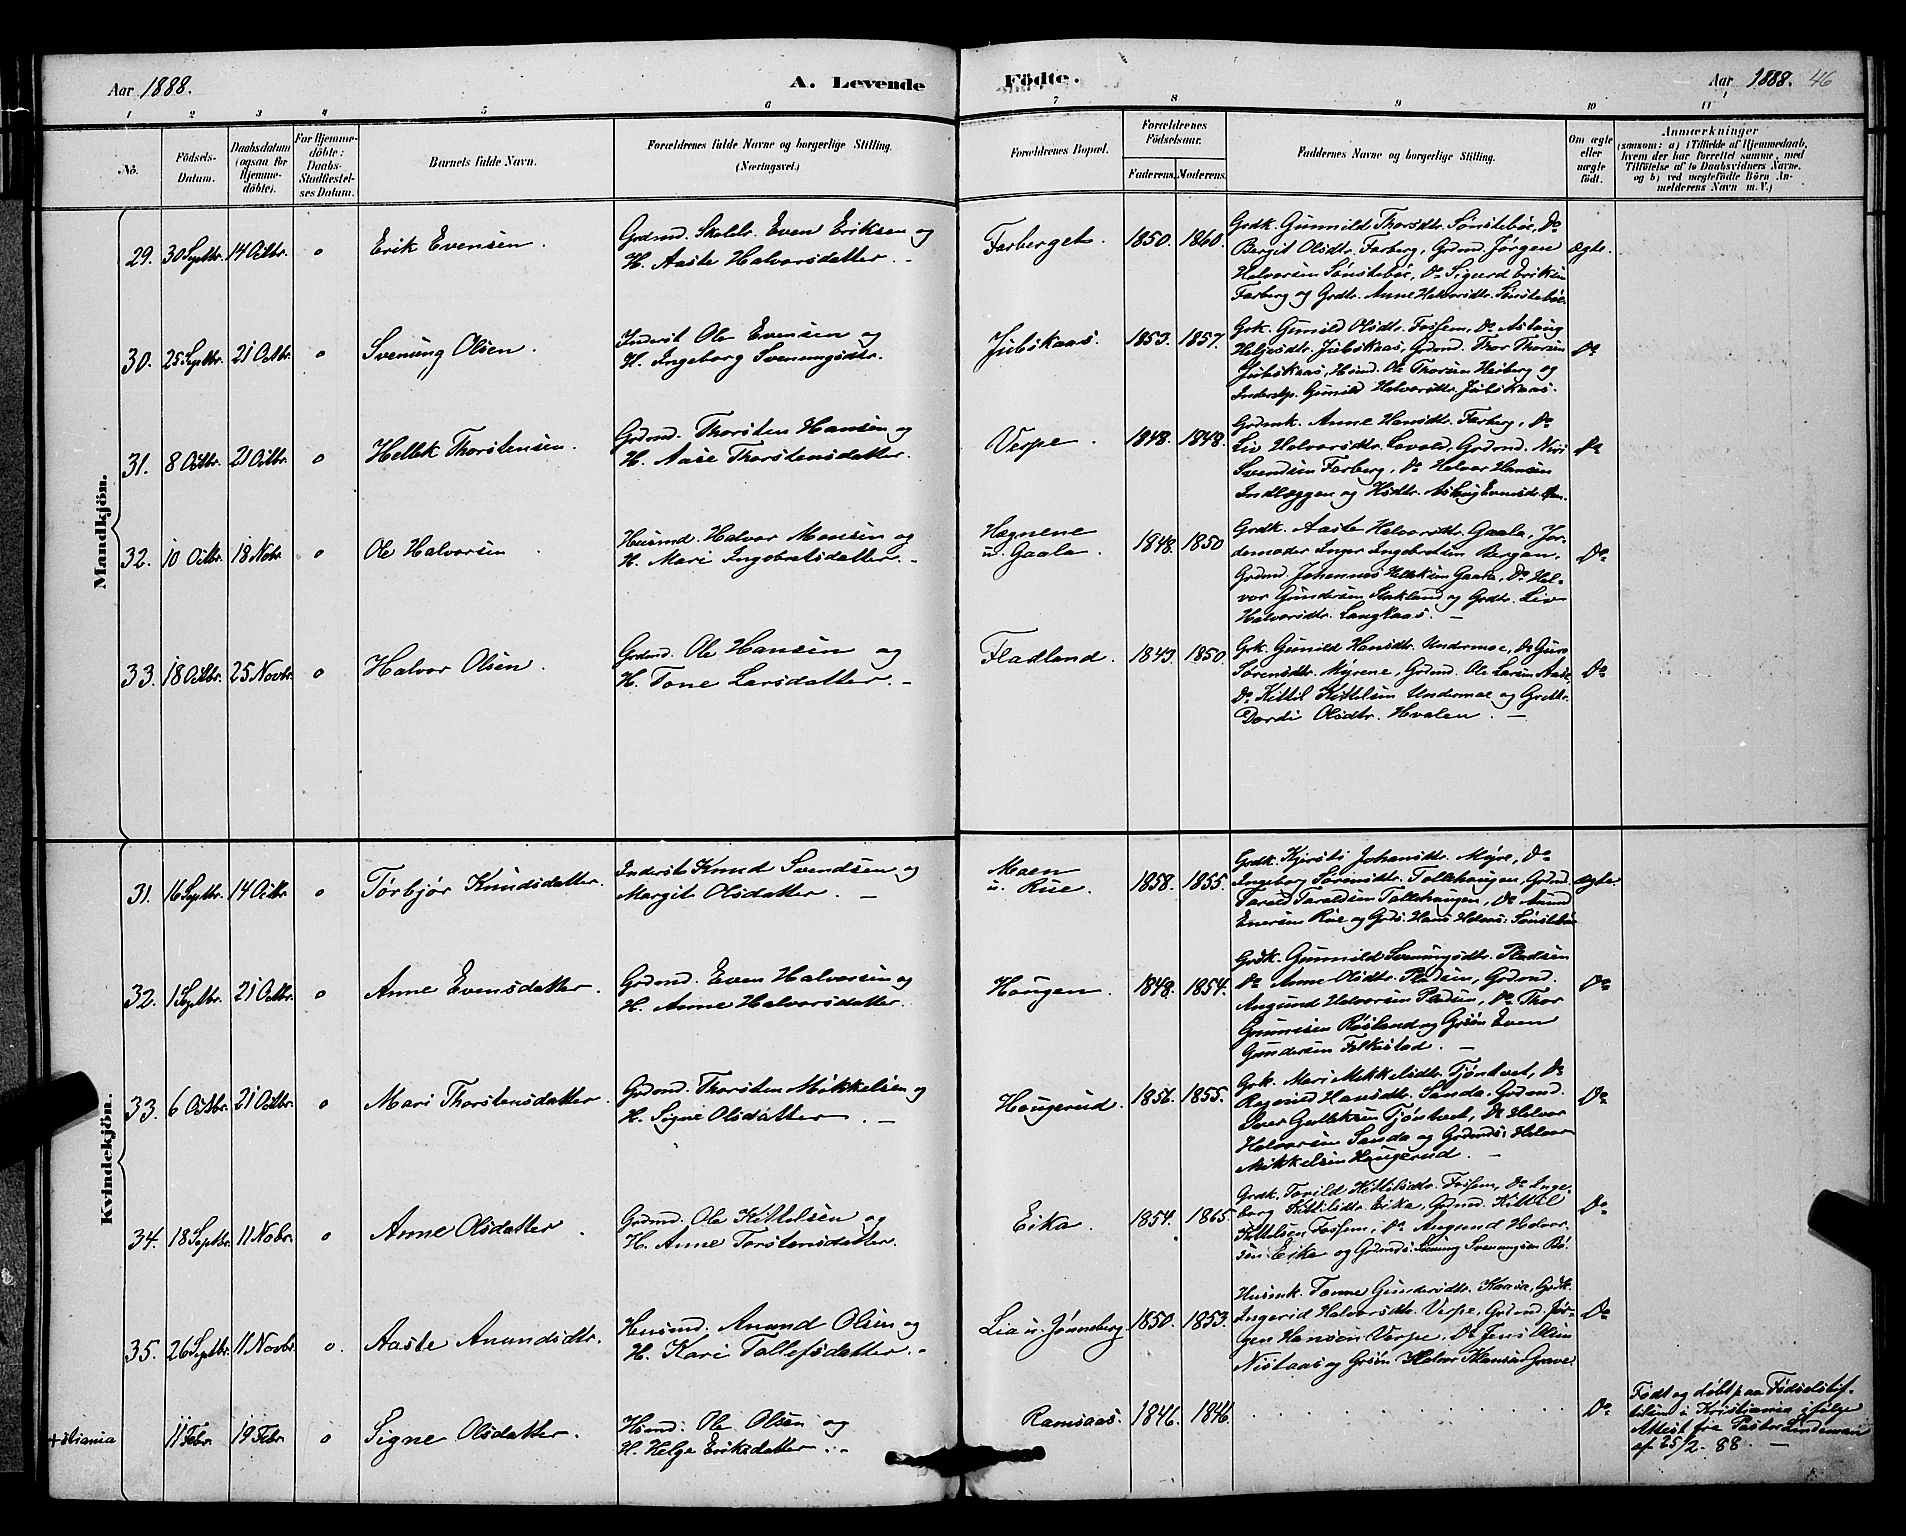 Aar 1888.
A. Levende
Födte.
Aar 1888. 46
1 2 3 4 5 6 7 8 9 10 11
No.
Födsels-
Datum.
Daabsdatum
(ogsaa for
Hjemme-
döbte).
For Hjemme-
döbte:
Daabs-
Stadfæstel-
ses Datum.
Barnets fulde Navn.
Forældrenes fulde Navne og borgerlige Stilling.
(Næringsvei.)
Forældrenes Bopæl.
Forældrenes
Födselsaar.
Faderens. Moderens.
Faddernes Navne og borgerlige Stilling.
Om ægte
eller
uægte
födt.
Anmærkninger
(saasom: a) i Tilfælde af Hjemmedaab,
hvem der har forrettet samme, med
Tilföielse af to Daabsvidners Navne,
og b) ved uægtefödte Börn An-
melderens Navn m. V.)
Mandkjön.
29. 30 Septbr. 14 Octbr. o Erik Evensen.
Grdmd. Skolelr. Even Eriksen og
H. Aaste Halvorsdatter. –
Farberget. 1850. 1860.
Grdk. Gunnild Thorsdtr. Sönstebøe, Do
Bergit Olsdtr. Farberg, Grdmd. Jörgen
Halvorsen Sönstebøe, Do Sigurd Eriksen
Farberg og Grdtr. Anne Halvorsdtr. Sönstebøe
ægte.
30. 25 Septbr. 21 Octbr. o Svenung Olsen.
Inderst Ole Evensen og
H. Ingeborg Svenungsdtr.
Jubskaas. 1853. 1857.
Grk. Gunild Olsdtr. Fossem, Do Aslaug
Helgesdtr. Jubskaas, Grdmd. Thor Thorsen
Jubskaas, Hmd. Ole Thorsen Heiberg og
Inderstp. Gunild Halvorsdtr. Jubskaas.
Do
31. 8 Octbr. 21 Octbr. o Hellek Thorstensen.
Grdmd. Thorsten Hansen og
H. Aase Thorstensdatter.
Verpe. 1848. 1848.
Grdmk. Anne Hansdtr. Farberg, Do
Liv Halvorsdtr. Lovald, Grdmd. Niri
Svendsen Farberg, Do Halvor Hansen
Indlæggen og Hsdtr. Aslaug Evensdtr.
Do
32. 10 Octbr. 18 Nobr. o Ole Halvorsen
Husmd. Halvor Monsen og
H. Mari Ingebretsdatter. –
Hægnene
u. Gaala. 1848. 1850
Grdk. Aaste Halvorsdtr. Gaala, Jor-
demoder Inger Ingebretsen Bergan,
Grdmd. Johannes Helleksen Gaala, Do Hal-
vor Gundersen Stakland og Grdtr. Liv
Halvorsdtr. Langkaas. –
Do
33. 18 Octbr. 25 Novbr. o Halvor Olsen.
Grdmd. Ole Hansen og
H. Tone Larsdatter. –
Fladland. 1843. 1850.
Grk. Gunild Hansdtr. Undermoe, Do Guro
Sörensdtr. Myrene, Grdmd. Ole Larsen Aase,
Do Kittil Kittelsen Undermoe og Grdtr.
Dordi Olsdtr. Hvalen. –
Do
Kvindekjön.
31. 16 Septbr. 14 Octbr o Törbjör Knudsdatter.
Inderst Knud Svendsen og
Margit Olsdatter. –
Moen
u. Rue. 1858. 1855.
Grdk. Kjersti Johansdtr. Myre, Do
Ingeborg Sörensdtr. Tollehaugen, Grdmd.
Tarald Taraldsen Tollehaugen, Do Anund
Enersen Rue og Grds. Hans Halvors: Sönstebøe
ægte
32. 1 Septbr. 21 Octbr. o Anne Evensdatter.
Grdmd. Even Halvorsen og
H. Anne Halvorsdatter.
Haugen. 1848. 1854.
Grdk. Gunnild Svenungsdtr. Pladsen
Do Anne Olsdtr. Pladsen, Grdmd.
Aagund Halvorsen Pladsen, Do Thor
Gunnisen Røsland og Grsön Even
Gundersen Folkestad. –
Do
33. 6 Octbr. 21 Octbr. o Mari Thorstensdatter.
Grdmd. Thorsten Mikkelsen og
H. Signe Olsdatter. –
Haugerud. 1856. 1855.
Grk. Mari Mikkelsdtr. Tjöntvet, Do
Ragnild Hansdtr. Sanda, Grdmd.
Iver Gulleksen Tjöntvet, Do Halvor
Halvorsen Sanda og Grdmds: Halvor
Mikkelsen Haugerud. –
Do
34. 18 Septbr. 11 Nobr. o Anne Olsdatter.
Grdmd. Ole Kittelsen og
H. Anne Torstensdatter.
Eika. 1854. 1865.
Grdk. Torild Kittilsdtr. Fossem, Do Inge-
borg Kittilsdtr. Eika, Grdmd. Kittil
Kittelsen Fossem, Do Aagund Halvor-
sen Eika og Grdmds: Svenung Svenungsen Bö.
Do
35. 26 Septbr. 11 Novbr. o. Aaste Anundsdtr.
Husmd. Anund Olsen og
H. Kari Tollefsdatter. –
Lia u. Jönneberg 1850. 1853.
Husmk. Tonne Gundersdtr. Kaasa, Grdk.
Ingerid Halvorsdtr. Verpe, Grdmd. Jör-
gen Hansen Verpe, Do Jens Olsen
Nistaas og Grsön Halvor Klausen Grave.
Do
+stiania 11 Febr. 19 Febr. o Signe Olsdatter.
Hsmd. Ole Olsen og
H. Helge Eriksdatter. –
Ramsaas. 1846. 1846.
Do
Født og døbt paa Fødselsstif-
telsen i Kristiania ifølge
Attest fra Pastor Lindeman
af 25/2 88. –